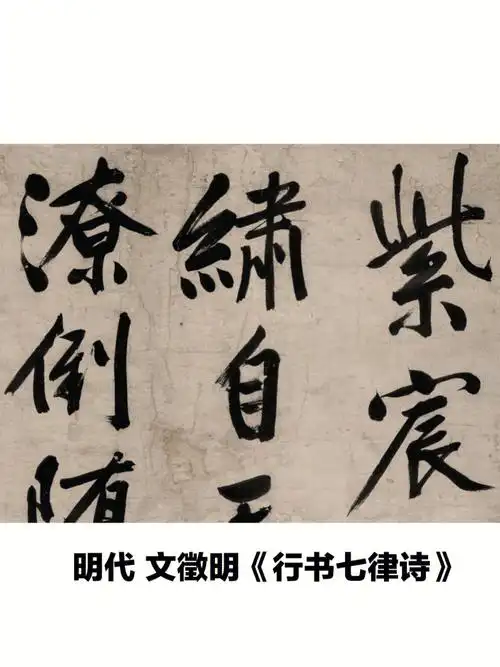 紫宸
繡自
潦倒
明代 文徵明《行书七律诗》